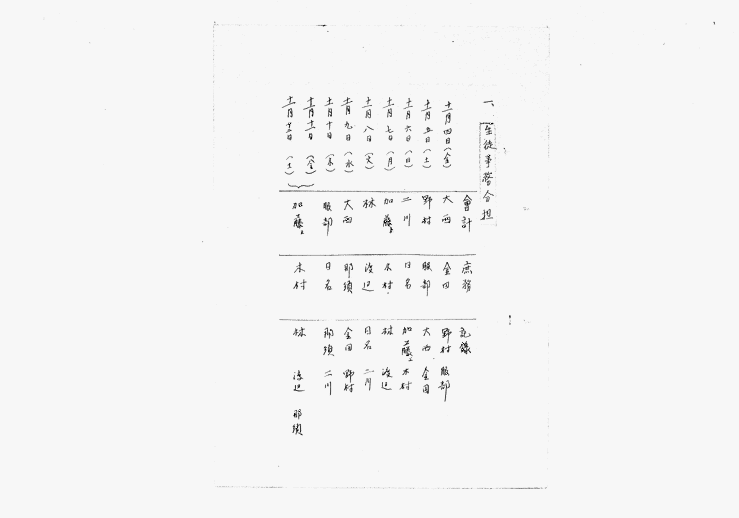 一、生徒事務分担
會計 庶務 記錄
十一月四日(金) 大西 金田 野村 服部
十一月五日(土) 野村 服部 大西 金田
十一月六日(日) 二川 日名 加藤 木村
十一月七日(月) 加藤 木村 林 渡辺
十一月八日(火) 林 渡辺 日名 二川
十一月九日(水) 大西 那須 金田 野村
十一月十日(木) 服部 日名 那須 二川
十一月十一日(金)
十一月十二日(土) 加藤 木村 林 渡辺 那須